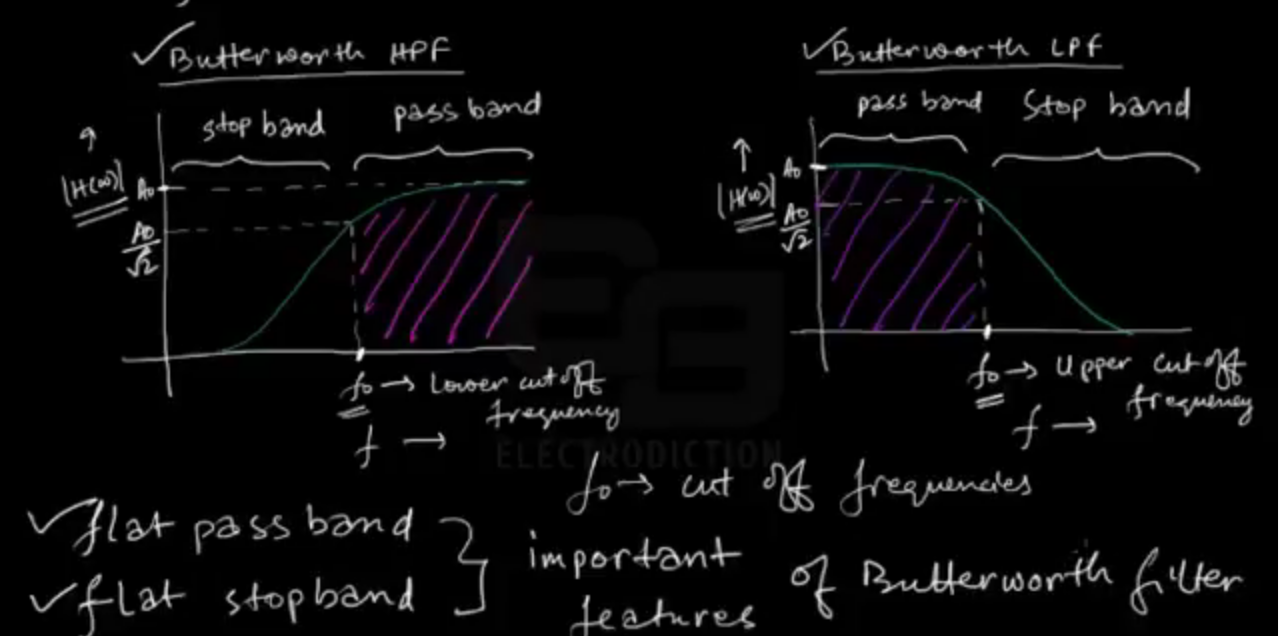 ✓Butterworth HPF
stop band
pass band
|H(ω)|
A₀
A₀/√2
f₀ → Lower cut off
frequency
f →
✓Butterworth LPF
pass band
Stop band
|H(ω)|
A₀
A₀/√2
f₀ → Upper cut off
frequency
f →
ELECTRODICTION
f₀ → cut off frequencies
✓flat pass band
✓flat stopband
important
features
of Butterworth filter